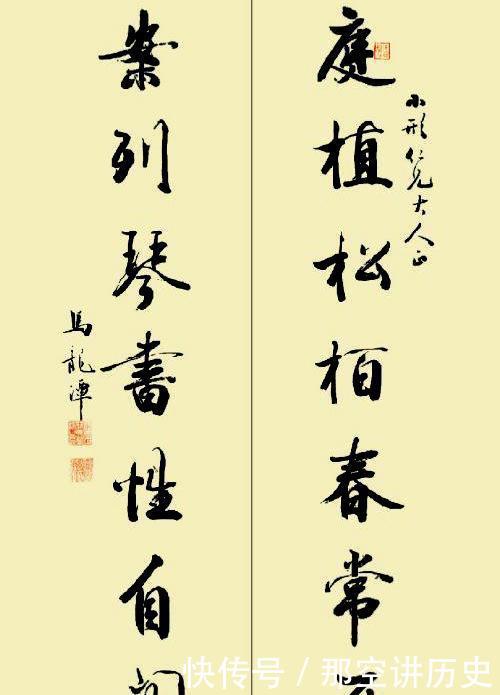 庭植松柏春常
小仁兄大人正
案列琴書性自
馬龍潭
快传号 / 那空讲历史